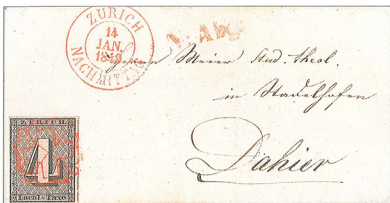 ZURICH
14
JAN.
NACHMITTAG
Herrn Meier Stud. theol.
in Stadelhofen
Dahier
ZURICH
4
Local-Taxe